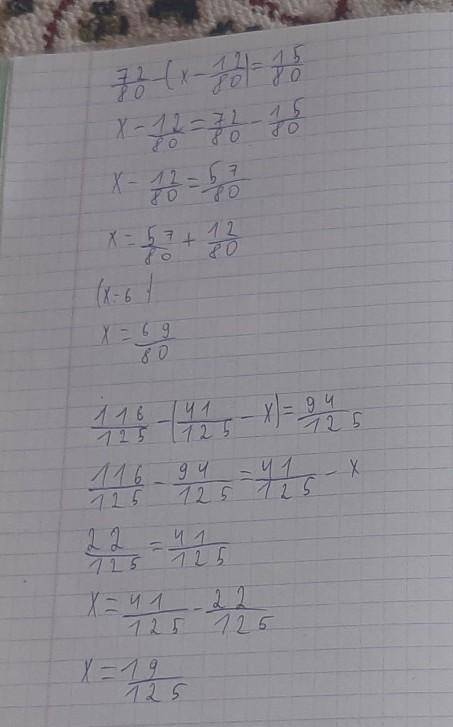 72/80 - (x - 12/80) = 15/80
x - 12/80 = 72/80 - 15/80
x - 12/80 = 57/80
x = 57/80 + 12/80
(x = 6 )
x = 69/80
116/125 - (41/125 - x) = 94/125
116/125 - 94/125 = 41/125 - x
22/125 = 41/125
x = 41/125 - 22/125
x = 19/125